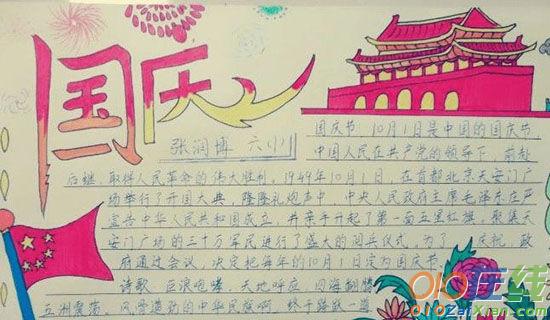 国庆
张润博 六(1)
国庆节,10月1日是中国的国庆节
中国人民在共产党的领导下,前赴
后继,取得人民革命的伟大胜利,1949年10月1日,在首都北京天安门广
场举行了开国大典,隆隆礼炮声中,中央人民政府主席毛泽东庄严
宣告中华人民共和国成立,并亲手升起了第一面五星红旗,聚集天
安门广场的三十万军民进行了盛大的阅兵仪式,为了 庆祝,政
府通过会议,决定把每年的10月1日定为国庆节
诗歌 巨浪咆哮,天地呼应 四海翻腾
五洲震荡,风雪
的中华民族啊 终于踏
在线
ZaiXian.com